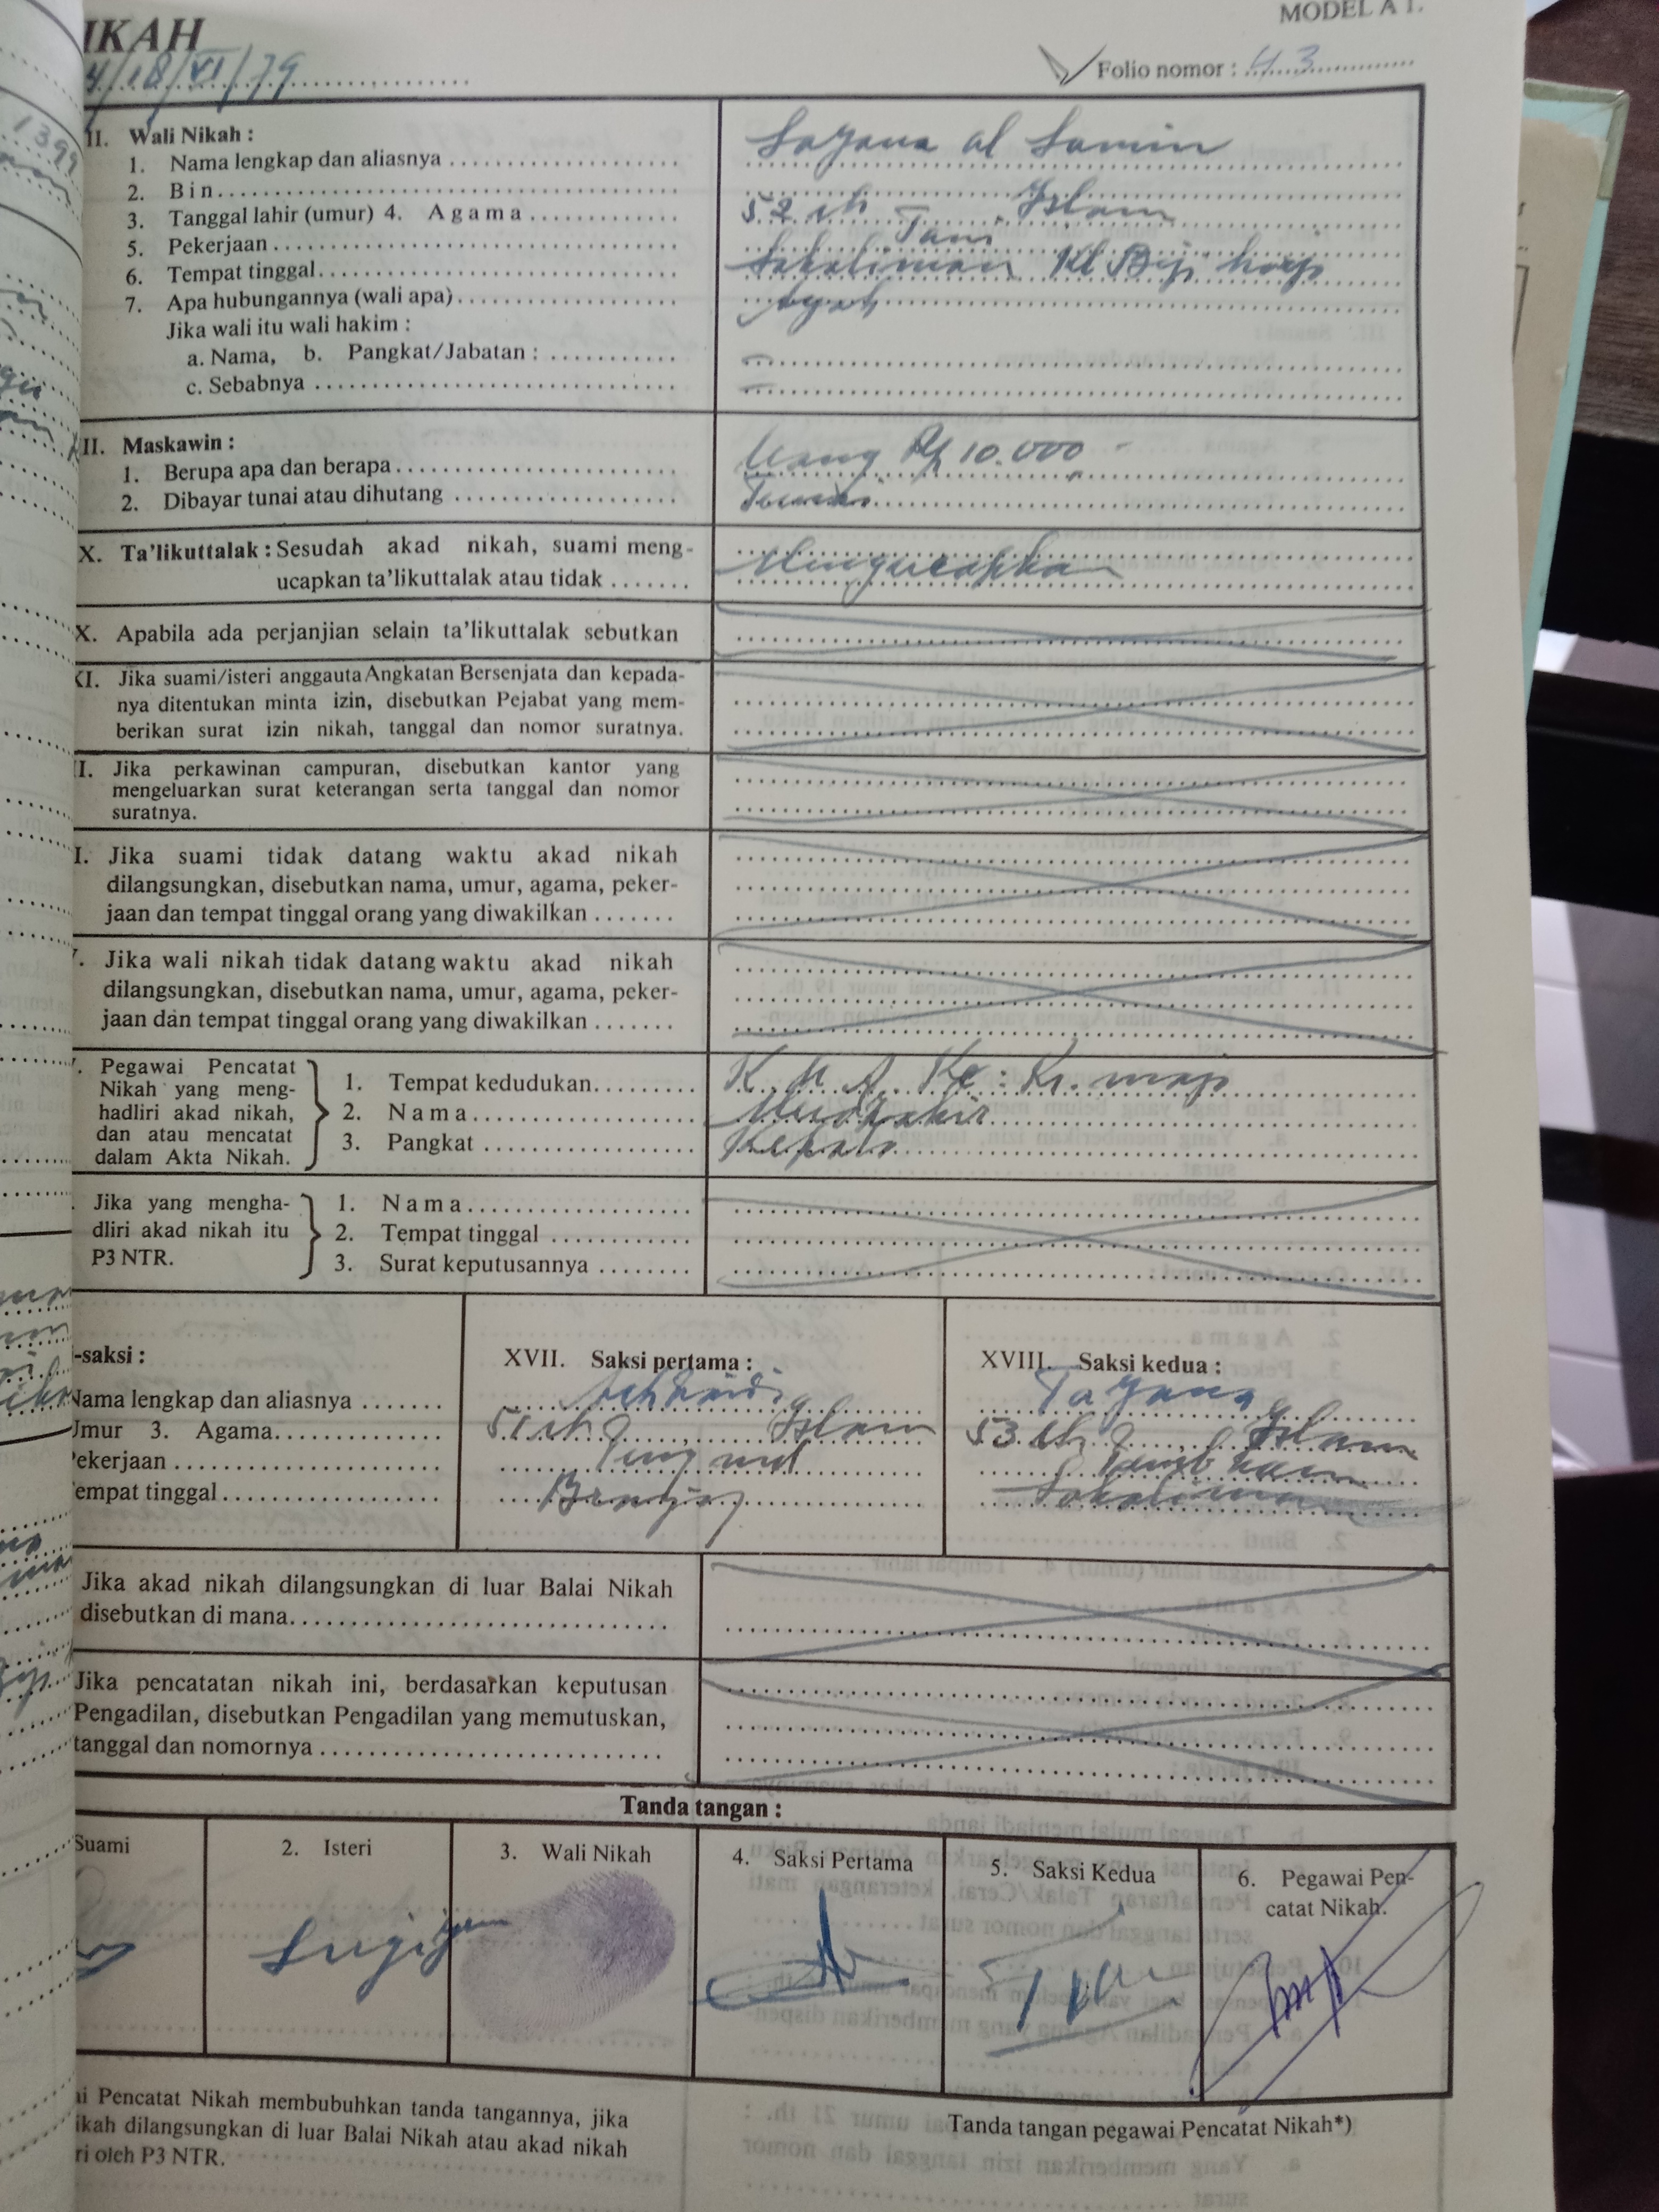 IKAH
MODEL A 1.
4/18/VI/79
Folio nomor : 43
II. Wali Nikah :
1. Nama lengkap dan aliasnya
Sayana al Samin
2. Bin
3. Tanggal lahir (umur) 4. Agama
52 th Islam
5. Pekerjaan
Tani
6. Tempat tinggal
Sokaliman
7. Apa hubungannya (wali apa)
Ayah
Jika wali itu wali hakim :
a. Nama, b. Pangkat/Jabatan :
c. Sebabnya
II. Maskawin :
1. Berupa apa dan berapa
Uang Rp 10.000 -
2. Dibayar tunai atau dihutang
Tunai
X. Ta'likuttalak : Sesudah akad nikah, suami meng-
ucapkan ta'likuttalak atau tidak
Mengucapkan
X. Apabila ada perjanjian selain ta'likuttalak sebutkan
XI. Jika suami/isteri anggauta Angkatan Bersenjata dan kepada-
nya ditentukan minta izin, disebutkan Pejabat yang mem-
berikan surat izin nikah, tanggal dan nomor suratnya.
II. Jika perkawinan campuran, disebutkan kantor yang
mengeluarkan surat keterangan serta tanggal dan nomor
suratnya.
I. Jika suami tidak datang waktu akad nikah
dilangsungkan, disebutkan nama, umur, agama, peker-
jaan dan tempat tinggal orang yang diwakilkan
. Jika wali nikah tidak datang waktu akad nikah
dilangsungkan, disebutkan nama, umur, agama, peker-
jaan dan tempat tinggal orang yang diwakilkan
Pegawai Pencatat
Nikah yang meng-
hadliri akad nikah,
dan atau mencatat
dalam Akta Nikah.
1. Tempat kedudukan
K.U.A. Kc : Kr. mojo
2. Nama
3. Pangkat
Kepala
Jika yang mengha-
dliri akad nikah itu
P3 NTR.
1. Nama
2. Tempat tinggal
3. Surat keputusannya
-saksi :
XVII. Saksi pertama :
XVIII. Saksi kedua :
Nama lengkap dan aliasnya
Tayana
Umur 3. Agama
51 th Islam
53 th Islam
Pekerjaan
tempat tinggal
Sokaliman
Jika akad nikah dilangsungkan di luar Balai Nikah
disebutkan di mana
Jika pencatatan nikah ini, berdasarkan keputusan
Pengadilan, disebutkan Pengadilan yang memutuskan,
tanggal dan nomornya
Tanda tangan :
Suami
2. Isteri
3. Wali Nikah
4. Saksi Pertama
5. Saksi Kedua
6. Pegawai Pen-
catat Nikah.
Sugiyem
ai Pencatat Nikah membubuhkan tanda tangannya, jika
ikah dilangsungkan di luar Balai Nikah atau akad nikah
ri oleh P3 NTR.
Tanda tangan pegawai Pencatat Nikah*)